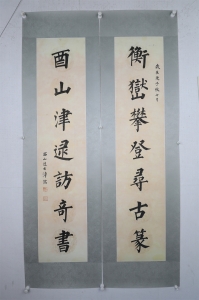 衡嶽攀登尋古篆
酉山津逮訪奇書